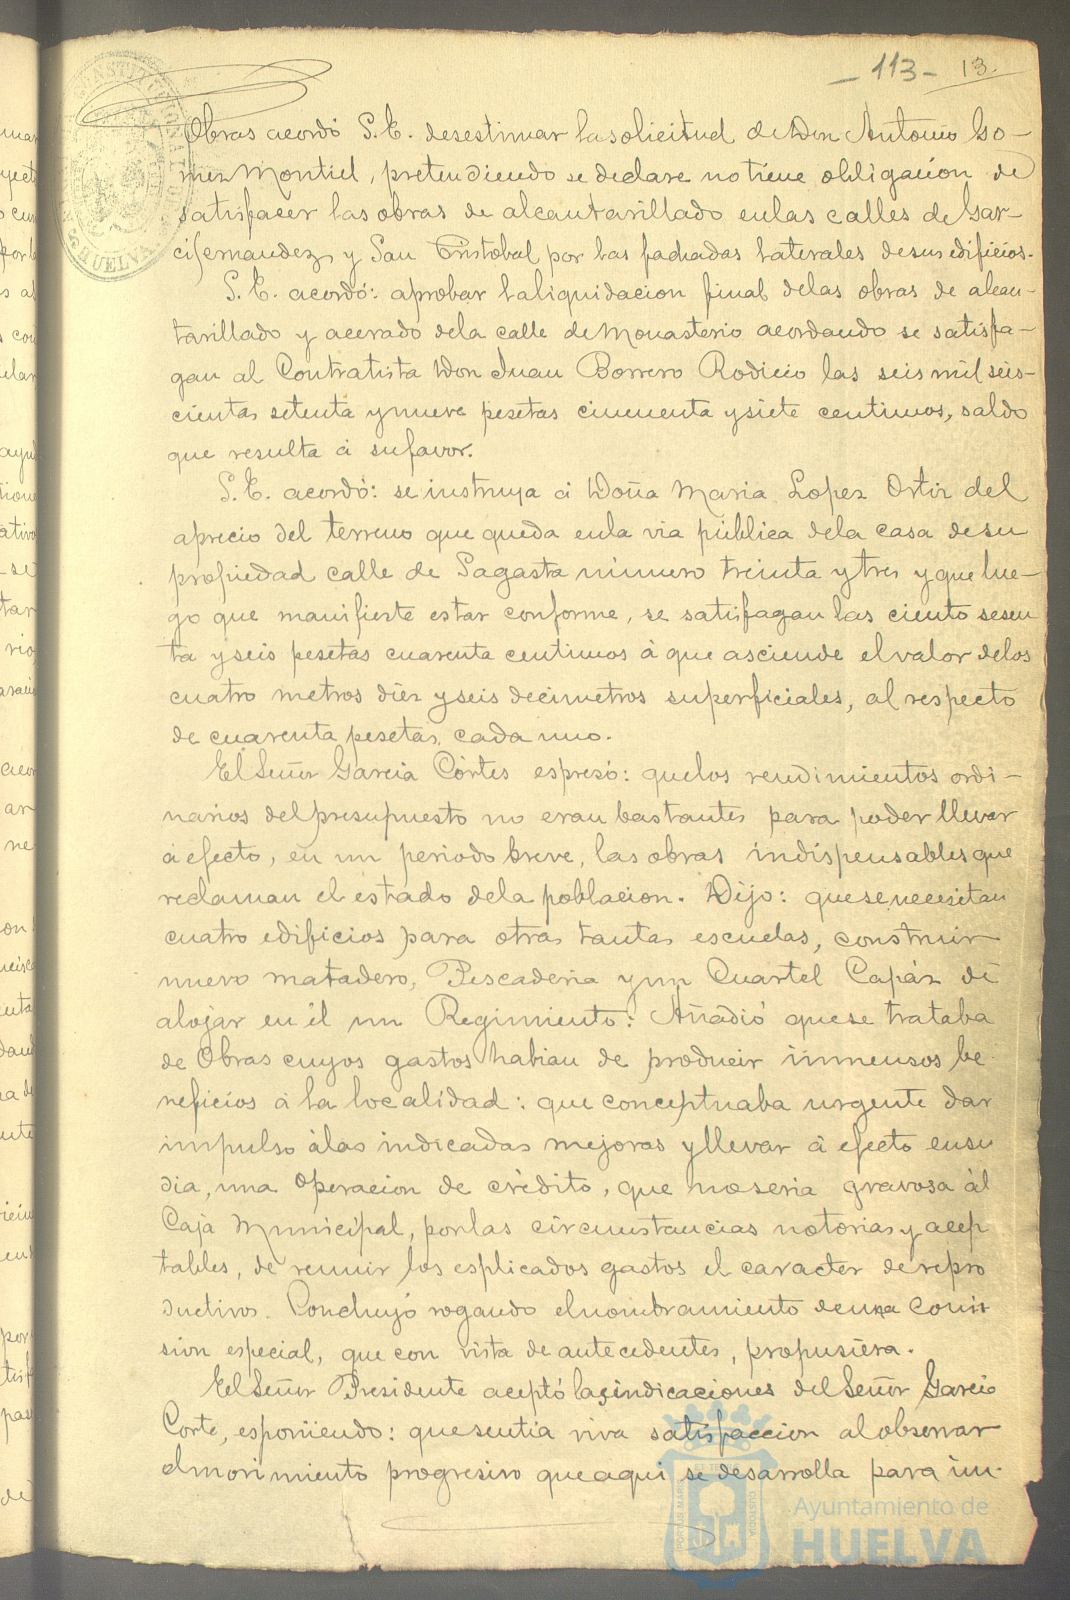 -113- 13.
Obras acordó S.E. desestimar la solicitud de Don Antonio Go-
mez Montiel, pretendiendo se declare no tiene obligación de
satisfacer las obras de alcantarillado en las calles de Gar-
cifernandez y San Cristobal por las fachadas laterales de sus edificios.
S.E. acordó: aprobar la liquidacion final de las obras de alcan-
tarillado y acerado de la calle de Monasterio acordando se satisfa-
gan al Contratista Don Juan Borrero Rodicio las seis mil seis-
cientas setenta y nueve pesetas cincuenta y siete centimos, saldo
que resulta á su favor.
S.E. acordó: se instruya á Doña Maria Lopez Ortiz del
aprecio del terreno que queda en la via pública de la casa de su
propiedad calle de Sagasta número treinta y tres y que lue-
go que manifieste estar conforme, se satisfagan las ciento sesen
ta y seis pesetas cuarenta centimos á que asciende el valor de los
cuatro metros diez y seis decimetros superficiales, al respecto
de cuarenta pesetas cada uno.
El Señor Garcia Córtes espresó: que los rendimientos ordi-
narios del presupuesto no eran bastantes para poder llevar
á efecto, en un periodo breve, las obras indispensables que
reclaman el estado de la poblacion. Dijo: que se necesitan
cuatro edificios para otras tantas escuelas, construir
nuevo matadero, Pescaderia y un Cuartel Capáz de
alojar en él un Regimiento: Añadió que se trataba
de Obras cuyos gastos habian de producir inmensos be
neficios á la localidad: que conceptuaba urgente dar
impulso á las indicadas mejoras y llevar á efecto en su
dia, una Operacion de crédito, que no seria gravosa al
Caja Municipal, por las circunstancias notorias y acep
tables, de reunir los esplicados gastos el caracter de repro
ductivos. Concluyó rogando el nombramiento de una Comi
sion especial, que con vista de antecedentes, propusiera.
El Señor Presidente aceptó las indicaciones del Señor Garcia
Corte, esponiendo: que sentia viva satisfaccion al observar
el movimiento progresivo que aqui se desarrolla para im-
Ayuntamiento de
HUELVA